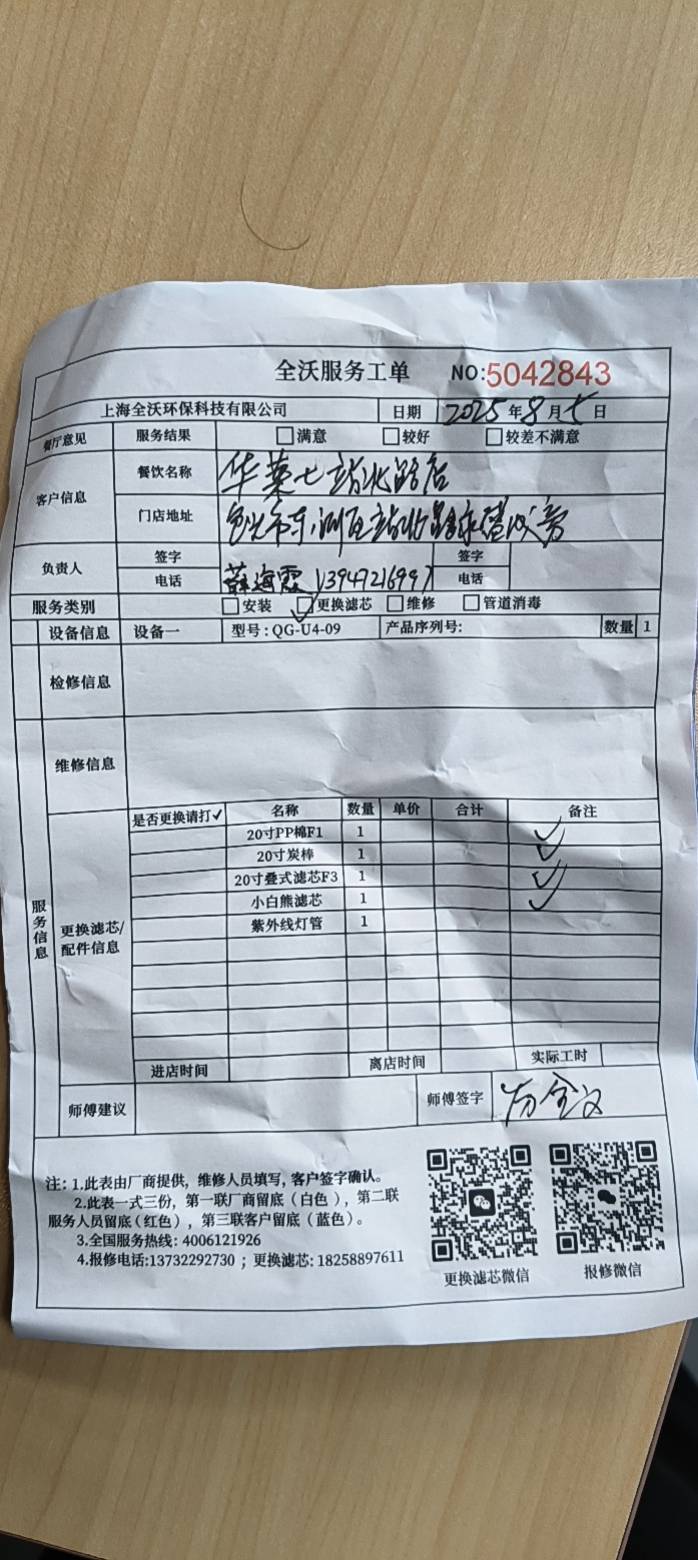 全沃服务工单 NO:5042843
上海全沃环保科技有限公司 日期 2025年8月5日
餐厅意见 服务结果 满意 较好 较差不满意
客户信息 餐饮名称 华莱士站北路店
门店地址
负责人 签字 签字
电话 薛海霞 13947216997 电话
服务类别 安装 更换滤芯 维修 管道消毒
设备信息 设备一 型号:QG-U4-09 产品序列号: 数量 1
检修信息
维修信息
服务信息
更换滤芯/配件信息
是否更换请打✓ 名称 数量 单价 合计 备注
20寸PP棉F1 1 ✓
20寸炭棒 1 ✓
20寸叠式滤芯F3 1 ✓
小白熊滤芯 1 ✓
紫外线灯管 1
进店时间 离店时间 实际工时
师傅建议 师傅签字
注: 1.此表由厂商提供, 维修人员填写, 客户签字确认。
2.此表一式三份, 第一联厂商留底(白色), 第二联
服务人员留底(红色), 第三联客户留底(蓝色)。
3.全国服务热线: 4006121926
4.报修电话:13732292730 ; 更换滤芯: 18258897611
更换滤芯微信 报修微信